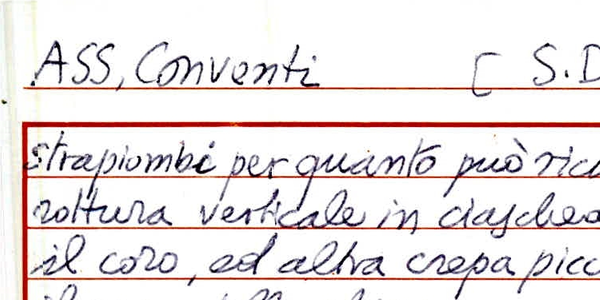 ASS, Conventi [ S.D
strapiombi per quanto può rico
rottura verticale in ciasched
il coro, ed altra crepa picc